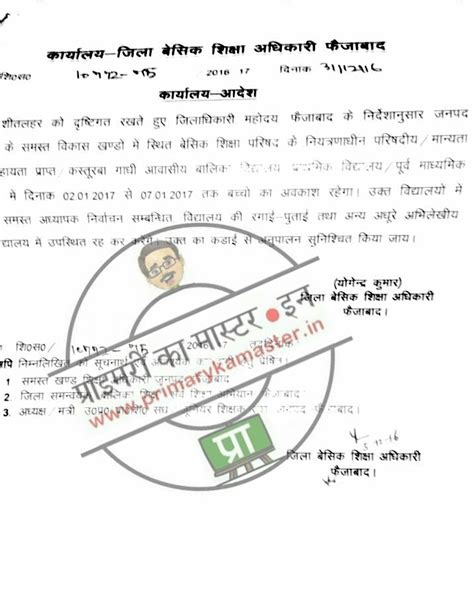 कार्यालय–जिला बेसिक शिक्षा अधिकारी फैजाबाद
शि0स0 10992-95 2016 17 दिनाक 31/12/16
कार्यालय–आदेश
शीतलहर को दृष्टिगत रखते हुए जिलाधिकारी महोदय फैजाबाद के निर्देशानुसार जनपद
के समस्त विकास खण्डो मे स्थित बेसिक शिक्षा परिषद के नियत्रणाधीन परिषदीय/मान्यता
हायता प्राप्त/कस्तूरबा गाधी आवासीय बालिका विद्यालय प्राथमिक विद्यालय/पूर्व माध्यमिक
मे दिनाक 02.01.2017 से 07.01.2017 तक बच्चो का अवकाश रहेगा। उक्त विद्यालयो मे
समस्त अध्यापक निर्वाचन सम्बन्धित विद्यालय की रगाई–पुताई तथा अन्य अधूरे अभिलेखीय
द्यालय मे उपस्थित रह कर करेगे। उक्त का कडाई से अनुपालन सुनिश्चित किया जाय।
(योगेन्द्र कुमार)
जिला बेसिक शिक्षा अधिकारी
फैजाबाद।
शि0स0/ 2016 17
निम्नलिखित को सूचनार्थ एव
1 समस्त खण्ड शिक्षा अधिकारी जनपद फैजाबाद
2. जिला समन्वयक बालिका शिक्षा सर्व शिक्षा अभियान फैजाबाद
3. अध्यक्ष/मत्री उ0प्र0 सघ जनपद फैजाबाद।
प्राइमरी का मास्टर इन
www.primarykamaster.in
प्रा
जिला बेसिक शिक्षा अधिकारी
फैजाबाद।